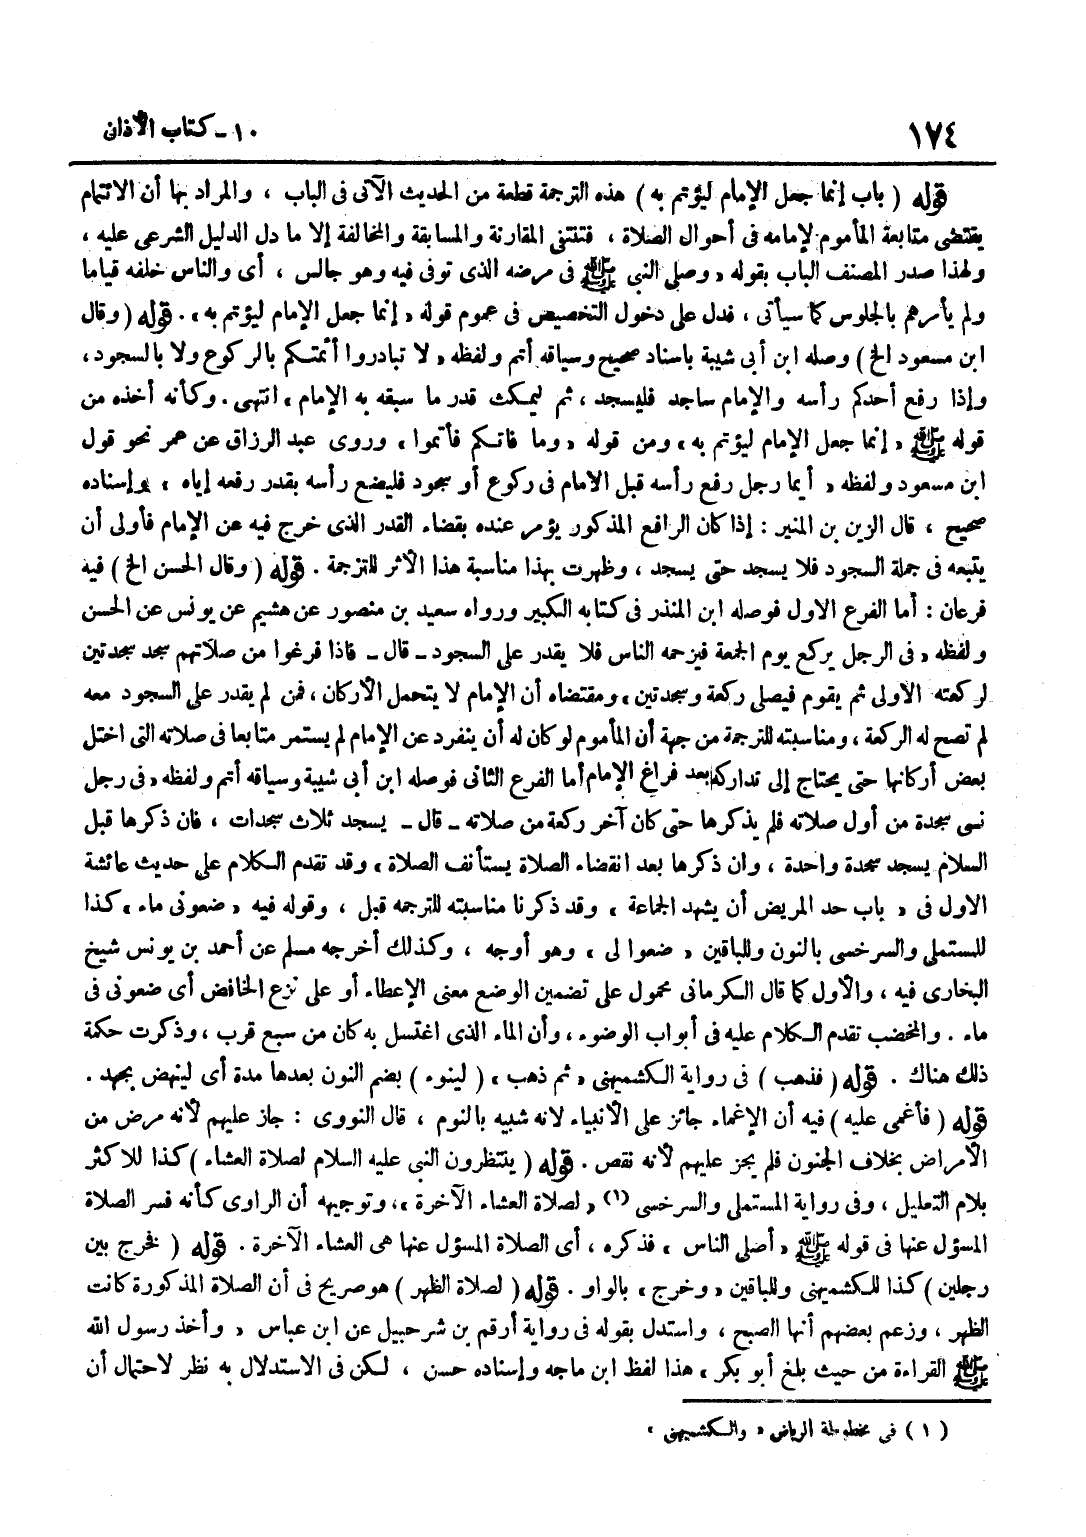 ١٧٤
١٠ - كتاب الأذان
قوله ( باب إنما جعل الإمام ليؤتم به ) هذه الترجمة قطعة من الحديث الآتى فى الباب ، والمراد بها أن الائتمام
يقتضى متابعة المأموم لإمامه فى أحوال الصلاة ، فتنتفى المقارنة والمسابقة والمخالفة إلا ما دل الدليل الشرعى عليه ،
ولهذا صدر المصنف الباب بقوله « وصلى النبى ﷺ فى مرضه الذى توفى فيه وهو جالس ، أى والناس خلفه قياما
ولم يأمرهم بالجلوس كما سيأتى ، فدل على دخول التخصيص فى عموم قوله « إنما جعل الإمام ليؤتم به » . قوله ( وقال
ابن مسعود الخ ) وصله ابن أبى شيبة باسناد صحيح وسياقه أتم ولفظه « لا تبادروا أئمتكم بالركوع ولا بالسجود ،
وإذا رفع أحدكم رأسه والإمام ساجد فليسجد ، ثم ليمكث قدر ما سبقه به الإمام » انتهى . وكأنه أخذه من
قوله ﷺ « إنما جعل الإمام ليؤتم به » ومن قوله « وما فاتكم فأتموا » وروى عبد الرزاق عن عمر نحو قول
ابن مسعود ولفظه « أيما رجل رفع رأسه قبل الامام فى ركوع أو سجود فليضع رأسه بقدر رفعه إياه » وإسناده
صحيح ، قال الزين بن المنير : إذا كان الرافع المذكور يؤمر عنده بقضاء القدر الذى خرج فيه عن الإمام فأولى أن
يتبعه فى جملة السجود فلا يسجد حتى يسجد ، وظهرت بهذا مناسبة هذا الأثر للترجمة . قوله ( وقال الحسن الخ ) فيه
فرعان : أما الفرع الاول فوصله ابن المنذر فى كتابه الكبير ورواه سعيد بن منصور عن هشيم عن يونس عن الحسن
ولفظه « فى الرجل يركع يوم الجمعة فيزحمه الناس فلا يقدر على السجود ـ قال ـ فاذا فرغوا من صلاتهم سجد سجدتين
لركعته الاولى ثم يقوم فيصلى ركعة وسجدتين » ومقتضاه أن الإمام لا يتحمل الأركان ، فمن لم يقدر على السجود معه
لم تصح له الركعة ، ومناسبته للترجمة من جهة أن المأموم لو كان له أن ينفرد عن الإمام لم يستمر متابعا فى صلاته التى اختل
بعض أركانها حتى يحتاج إلى تداركه بعد فراغ الإمام أما الفرع الثانى فوصله ابن أبى شيبة وسياقه أتم ولفظه « فى رجل
نسى سجدة من أول صلاته فلم يذكرها حتى كان آخر ركعة من صلاته ـ قال ـ يسجد ثلاث سجدات ، فان ذكرها قبل
السلام يسجد سجدة واحدة ، وان ذكرها بعد انقضاء الصلاة يستأنف الصلاة » وقد تقدم الكلام على حديث عائشة
الاول فى « باب حد المريض أن يشهد الجماعة » وقد ذكرنا مناسبته للترجمه قبل ، وقوله فيه « ضعونى ماء » كذا
للمستملى والسرخسى بالنون وللباقين « ضعوا لى » وهو أوجه ، وكذلك أخرجه مسلم عن أحمد بن يونس شيخ
البخارى فيه ، والأول كما قال الكرمانى محمول على تضمين الوضع معنى الإعطاء أو على نزع الخافض أى ضعونى فى
ماء . والمخضب تقدم الكلام عليه فى أبواب الوضوء ، وأن الماء الذى اغتسل به كان من سبع قرب ، وذكرت حكمة
ذلك هناك . قوله ( فذهب ) فى رواية الكشميهنى « ثم ذهب » ( لينوء ) بضم النون بعدها مدة أى لينهض بجهد .
قوله ( فأغمى عليه ) فيه أن الإغماء جائز على الأنبياء لانه شبيه بالنوم ، قال النووى : جاز عليهم لأنه مرض من
الأمراض بخلاف الجنون فلم يجز عليهم لأنه نقص . قوله ( ينتظرون النبى عليه السلام لصلاة العشاء ) كذا للاكثر
بلام التعليل ، وفى رواية المستملى والسرخسى (١) « لصلاة العشاء الآخرة » ، وتوجيهه أن الراوى كأنه فسر الصلاة
المسؤل عنها فى قوله ﷺ « أصلى الناس » فذكره ، أى الصلاة المسؤل عنها هى العشاء الآخرة . قوله ( فخرج بين
رجلين ) كذا للكشميهنى وللباقين « وخرج » بالواو . قوله ( لصلاة الظهر ) هو صريح فى أن الصلاة المذكورة كانت
الظهر ، وزعم بعضهم أنها الصبح ، واستدل بقوله فى رواية أرقم بن شرحبيل عن ابن عباس « وأخذ رسول الله
ﷺ القراءة من حيث بلغ أبو بكر » هذا لفظ ابن ماجه وإسناده حسن ، لكن فى الاستدلال به نظر لاحتمال أن
( ١ ) فى مخطوطة الرياض « والكشميهنى »